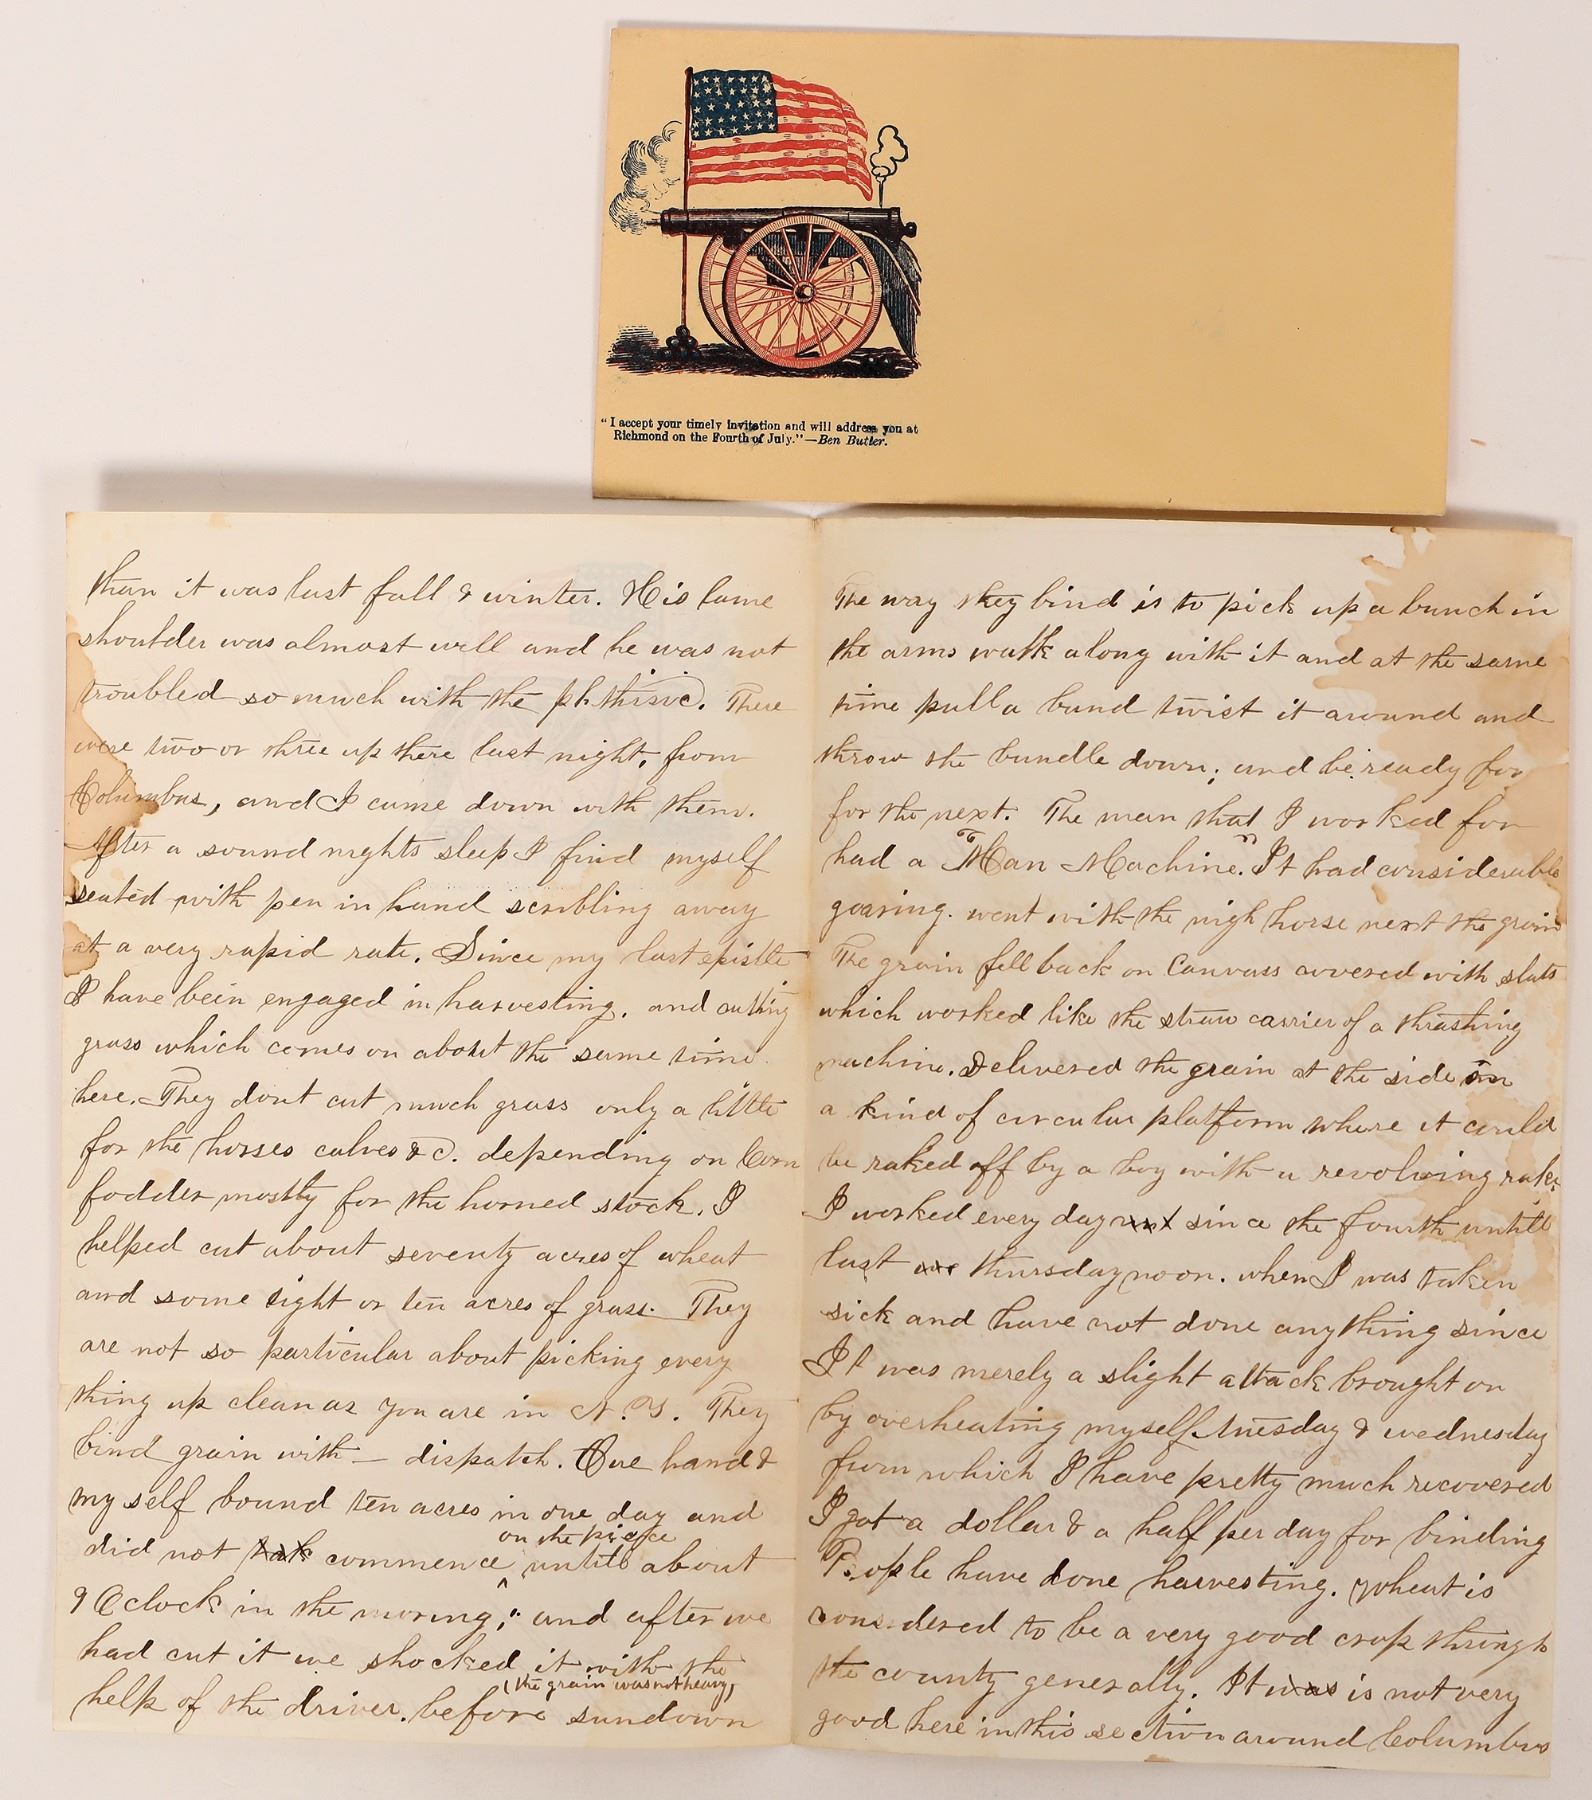 "I accept your timely invitation and will address you at
Richmond on the Fourth of July."—Ben Butler.
than it was last fall & winter. His lame
shoulder was almost well and he was not
troubled so much with the phthisic. There
were two or three up there last night, from
Columbus, and I came down with them.
After a sound nights sleep I find myself
seated with pen in hand scribling away
at a very rapid rate. Since my last epistle
I have been engaged in harvesting, and cutting
grass which comes on about the same time
here. They dont cut much grass only a little
for the horses calves &c. depending on Corn
fodder mostly for the horned stock. I
helped cut about seventy acres of wheat
and some eight or ten acres of grass. They
are not so particular about picking every
thing up clean as you are in N.Y. They
bind grain with — dispatch. One hand &
my self bound ten acres in one day and
on the piece
did not commence ^ untill about
9 Oclock in the moring, and after we
had cut it we shocked it with the
(the grain was not heavy)
help of the driver. before sundown
The way they bind is to pick up a bunch in
the arms walk along with it and at the same
time pull a band twist it around and
throw the bundle down; and be ready for
for the next. The man that I worked for
had a "Man Machine". It had considerable
gearing. went with the nigh horse next the grain
The grain fell back on Canvass covered with slats
which worked like the straw carrier of a thrashing
machine. Delivered the grain at the side on
a kind of circular platform where it could
be raked off by a boy with a revolving rake
I worked every day since the fourth untill
last thursday noon. when I was taken
sick and have not done anything since
It was merely a slight attack brought on
by overheating myself tuesday & wednesday
from which I have pretty much recovered
I got a dollar & a half per day for binding
People have done harvesting. Wheat is
considered to be a very good crop through
the county generally. It was is not very
good here in this section around Columbus